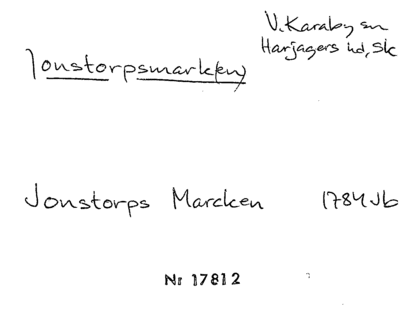 V. Karaby sn
Harjagers hd, Sk
Jonstorpsmark(en)
Jonstorps Marcken 1784 Jb
Nr 17812